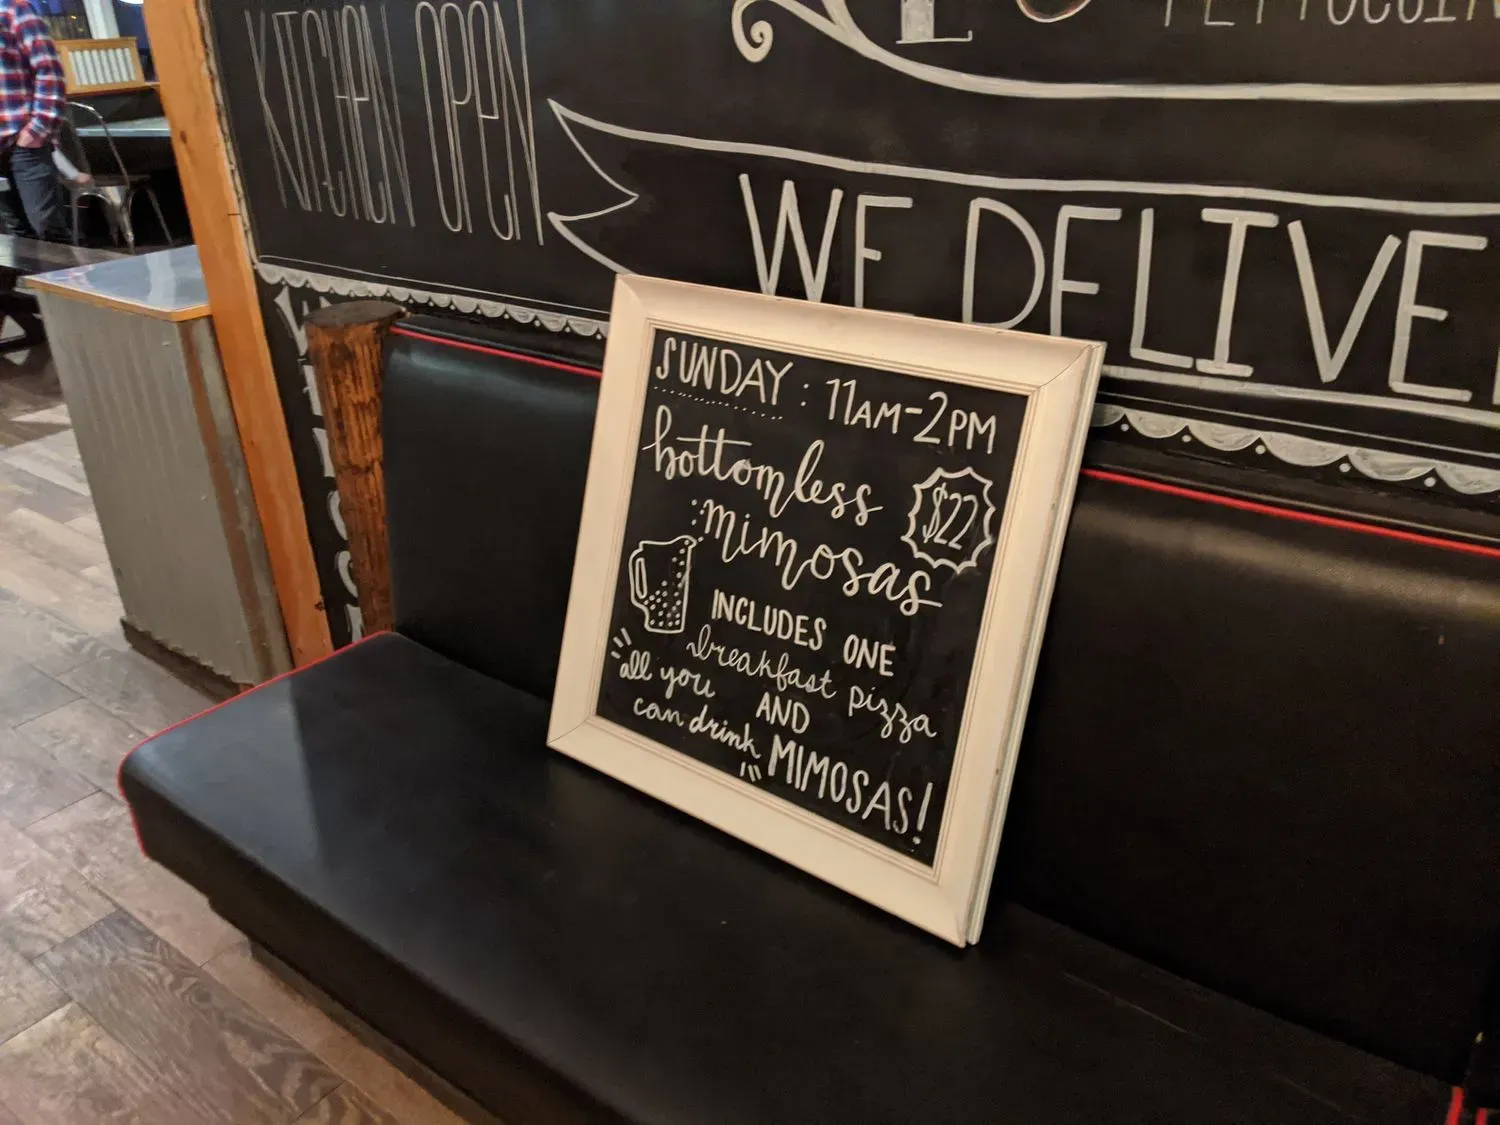 KITCHEN OPEN
WE DELIVE
SUNDAY: 11AM-2PM
bottomless
mimosas
$22
INCLUDES ONE
breakfast pizza
AND
all you
can drink
MIMOSAS!